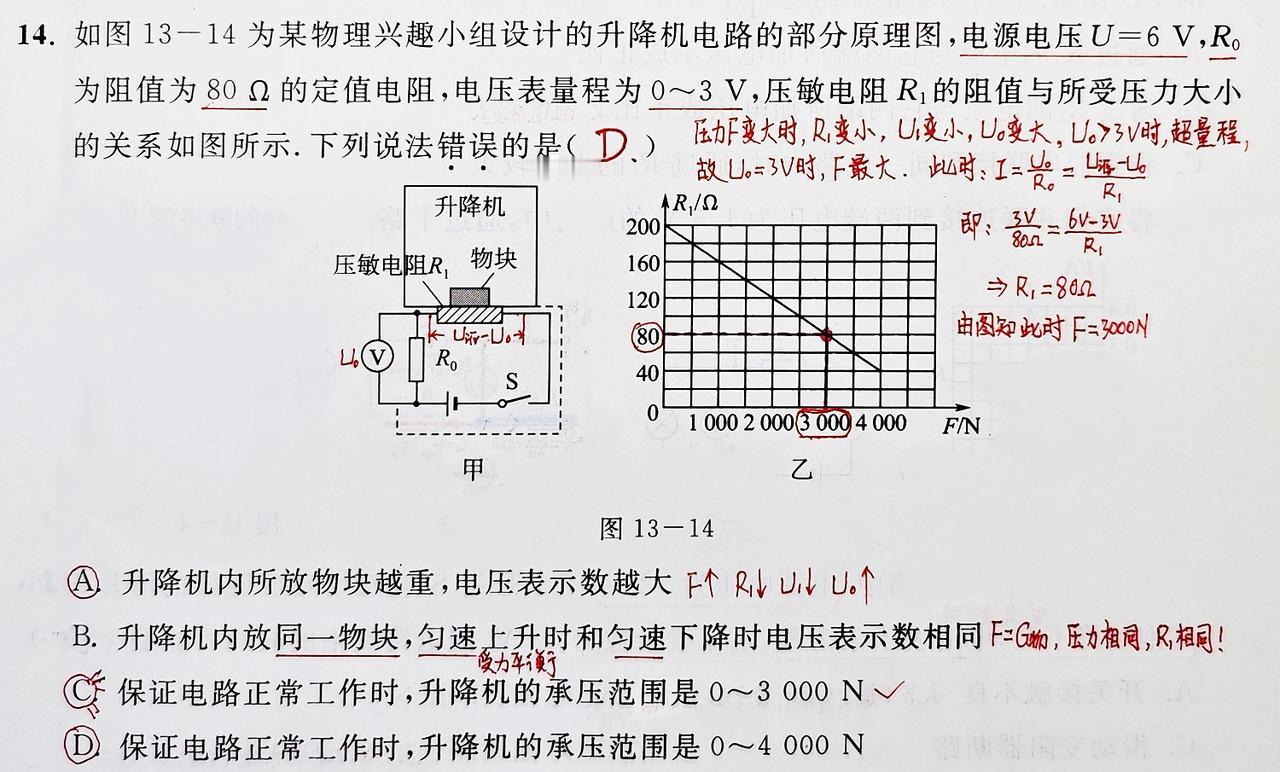 14. 如图 13－14 为某物理兴趣小组设计的升降机电路的部分原理图,电源电压 U＝6 V, R₀
为阻值为 80 Ω 的定值电阻,电压表量程为 0～3 V,压敏电阻 R₁ 的阻值与所受压力大小
的关系如图所示. 下列说法错误的是( D )
压力F变大时, R₁变小, U₁变小, U₀变大, U₀>3V时,超量程,
故U₀=3V时, F最大. 此时: I=U₀/R₀=(U源-U₀)/R₁
即: 3V/80Ω=(6V-3V)/R₁
⇒ R₁=80Ω
由图知此时 F=3000N
升降机
压敏电阻R₁ 物块
U源-U₀
U₀ V R₀ S
甲
R₁/Ω
200
160
120
80
40
0
1 000 2 000 3 000 4 000 F/N
乙
图 13－14
A. 升降机内所放物块越重,电压表示数越大 F↑ R₁↓ U₁↓ U₀↑
B. 升降机内放同一物块,匀速上升时和匀速下降时电压表示数相同 F=G物, 压力相同, R₁相同!
受力平衡
C. 保证电路正常工作时,升降机的承压范围是 0～3 000 N ✓
D. 保证电路正常工作时,升降机的承压范围是 0～4 000 N